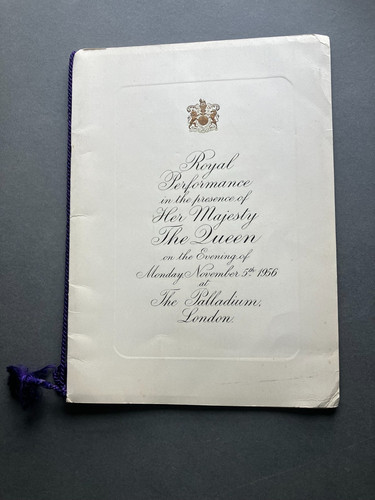 Royal
Performance
in the presence of
Her Majesty
The Queen
on the Evening of
Monday, November 5th 1956
at
The Palladium,
London.